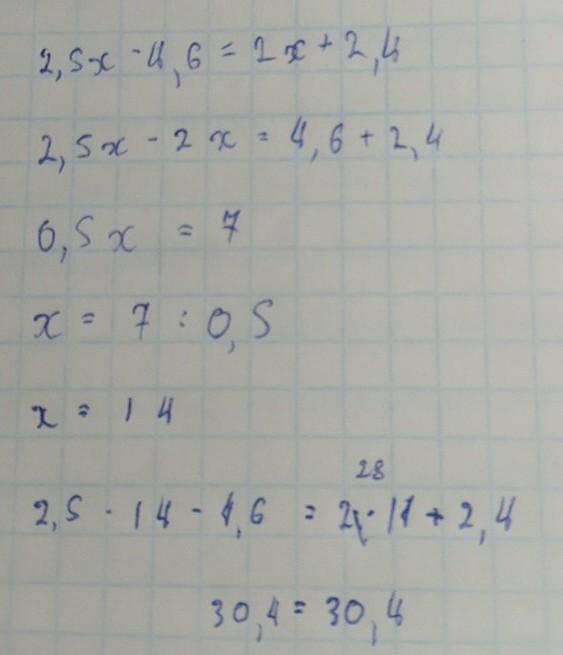 2,5x - 4,6 = 2x + 2,4
2,5x - 2x = 4,6 + 2,4
0,5x = 7
x = 7 : 0,5
x = 14
28
2,5 · 14 - 4,6 = 2 · 14 + 2,4
30,4 = 30,4